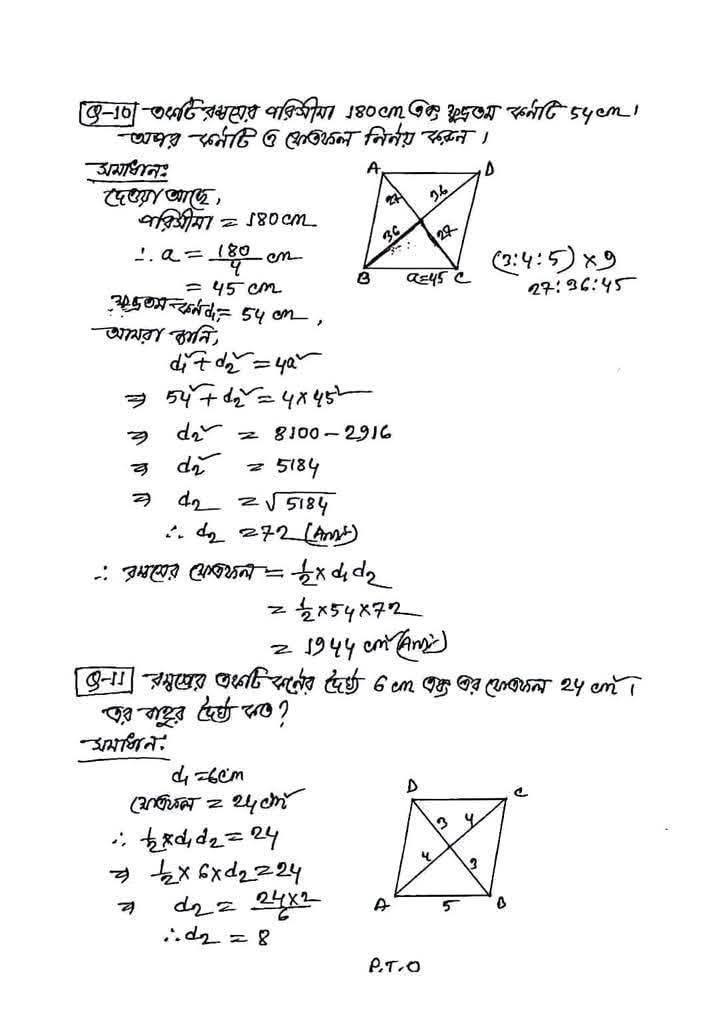 Q-10 একটি রম্বসের পরিসীমা 180 cm এবং ক্ষুদ্রতম কর্ণটি 54 cm।
অপর কর্ণটি ও ক্ষেত্রফল নির্নয় করুন।
সমাধান:
দেওয়া আছে,
পরিসীমা = 180 cm
∴ a = 180/4 cm
= 45 cm
ক্ষুদ্রতম কর্ন d₁ = 54 cm,
আমরা জানি,
d₁² + d₂² = 4a²
⇒ 54² + d₂² = 4×45²
⇒ d₂² = 8100 - 2916
⇒ d₂² = 5184
⇒ d₂ = √5184
∴ d₂ = 72 (Ans:)
∴ রম্বসের ক্ষেত্রফল = ½ × d₁ d₂
= ½ × 54 × 72
= 1944 cm² (Ans:)
A D
27 36
36 27
B a=45 C
(3:4:5) × 9
27:36:45
Q-11 রম্বসের একটি কর্নের দৈর্ঘ্য 6 cm এবং এর ক্ষেত্রফল 24 cm²।
এর বাহুর দৈর্ঘ্য কত?
সমাধান:
d₁ = 6cm
ক্ষেত্রফল = 24 cm²
∴ ½ × d₁ d₂ = 24
⇒ ½ × 6 × d₂ = 24
⇒ d₂ = 24×2/6
∴ d₂ = 8
D C
3 4
4 3
A 5 B
P.T.O